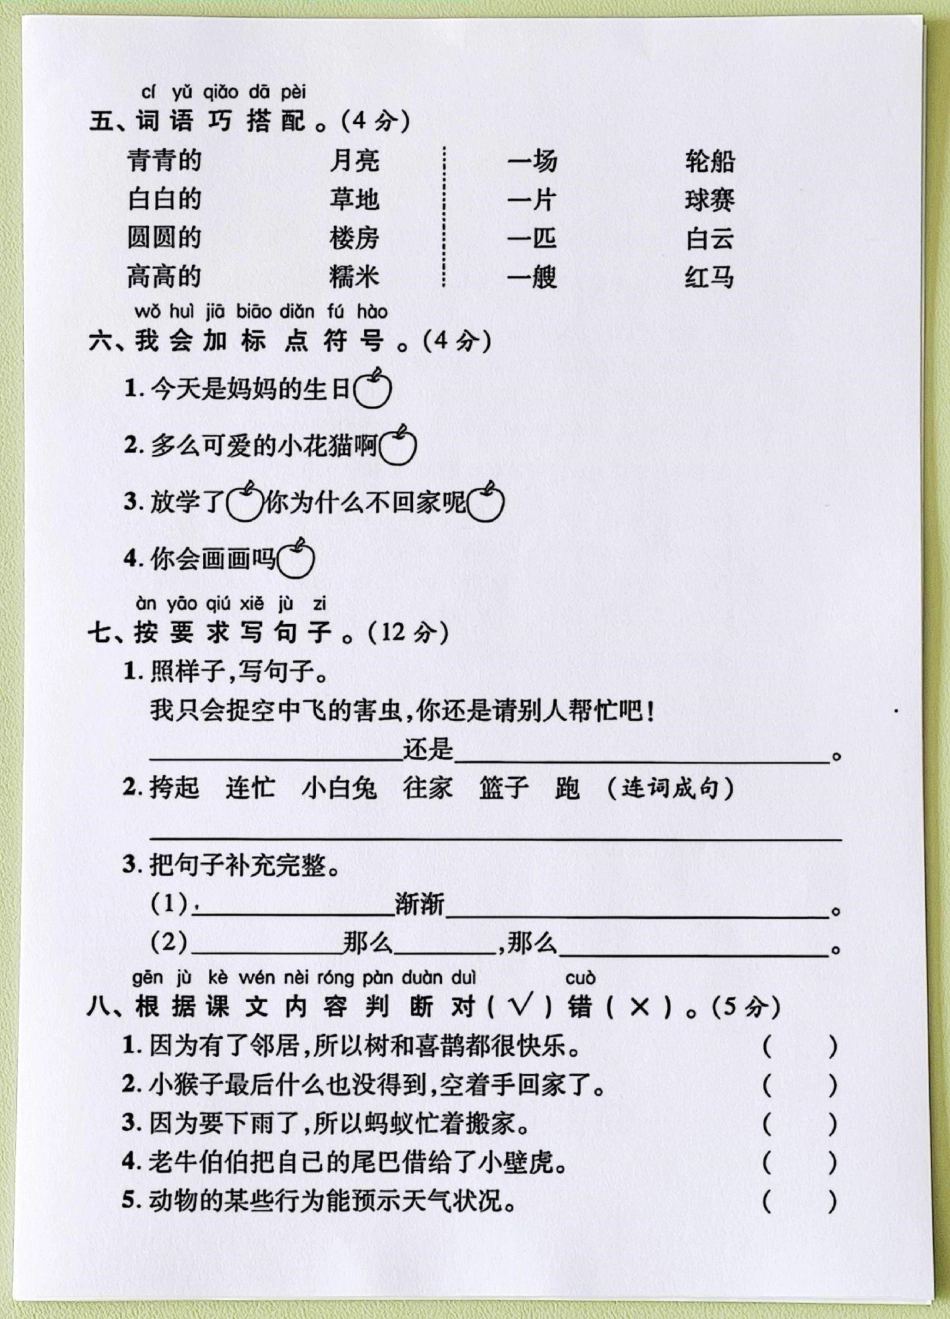 cí yǔ qiǎo dā pèi
五、词语巧搭配。(4分)
青青的 月亮 一场 轮船
白白的 草地 一片 球赛
圆圆的 楼房 一匹 白云
高高的 糯米 一艘 红马
wǒ huì jiā biāo diǎn fú hào
六、我会加标点符号。(4分)
1. 今天是妈妈的生日
2. 多么可爱的小花猫啊
3. 放学了 你为什么不回家呢
4. 你会画画吗
àn yāo qiú xiě jù zi
七、按要求写句子。(12分)
1. 照样子,写句子。
我只会捉空中飞的害虫,你还是请别人帮忙吧!
____________________还是______________________________。
2. 挎起 连忙 小白兔 往家 篮子 跑 (连词成句)
3. 把句子补充完整。
(1)________________渐渐______________________________。
(2)____________那么________,那么_____________________。
gēn jù kè wén nèi róng pàn duàn duì cuò
八、根据课文内容判断对(√)错(×)。(5分)
1. 因为有了邻居,所以树和喜鹊都很快乐。 ( )
2. 小猴子最后什么也没得到,空着手回家了。 ( )
3. 因为要下雨了,所以蚂蚁忙着搬家。 ( )
4. 老牛伯伯把自己的尾巴借给了小壁虎。 ( )
5. 动物的某些行为能预示天气状况。 ( )